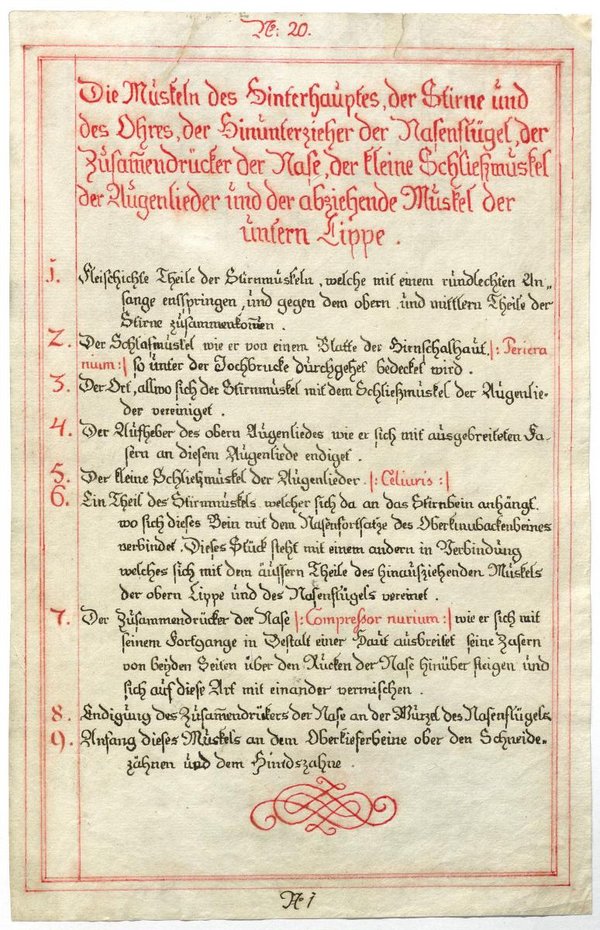 No: 20.
Die Muskeln des Hinterhauptes, der Stirne und
des Ohres, der Hinunterzieher der Nasenflügel, der
Zusam̅endrücker der Nase, der kleine Schließmuskel
der Augenlieder und der abziehende Muskel der
untern Lippe.
1. Fleischichte Theile der Stirnmuskeln, welche mit einem rundlechten An=
fange entspringen, und gegen dem obern und mittlern Theile der
Stirne zusammenkom̅en.
2. Der Schlafmuskel wie er von einem Blatte der Hirnschalhaut |: Pericra
nium :| so unter der Jochbrucke durchgehet bedecket wird.
3. Der Ort, allwo sich der Stirnmuskel mit dem Schließmuskel der Augenlie=
der vereiniget.
4. Der Aufheber des obern Augenliedes wie er sich mit ausgebreiteten Fa=
sern an diesem Augenliede endiget.
5. Der kleine Schließmuskel der Augenlieder |: Celiuris :|
6. Ein Theil des Stirnmuskels welcher sich da an das Stirnbein anhängt.
wo sich dieses Bein mit dem Nasenfortsatze des Oberkinnbackenbeines
verbindet. Dieses Stück steht mit einem andern in Verbindung
welches sich mit dem äussern Theile des hinaufziehenden Muskels
der obern Lippe und des Nasenflügels vereinet.
7. Der Zusammendrücker der Nase |: Compressor nurium :| wie er sich mit
seinem Fortgange in Gestalt einer Haut ausbreitet seine Zasern
von beyden Seiten über den Rücken der Nase hinüber steigen und
sich auf diese Art mit einander vermischen.
8. Endigung des Zusam̅endrükers der Nase an der Wurzel des Nasenflügels
9. Anfang dieses Muskels an dem Oberkieferbeine ober den Schneide=
zähnen und dem Hundszahne.
No 1